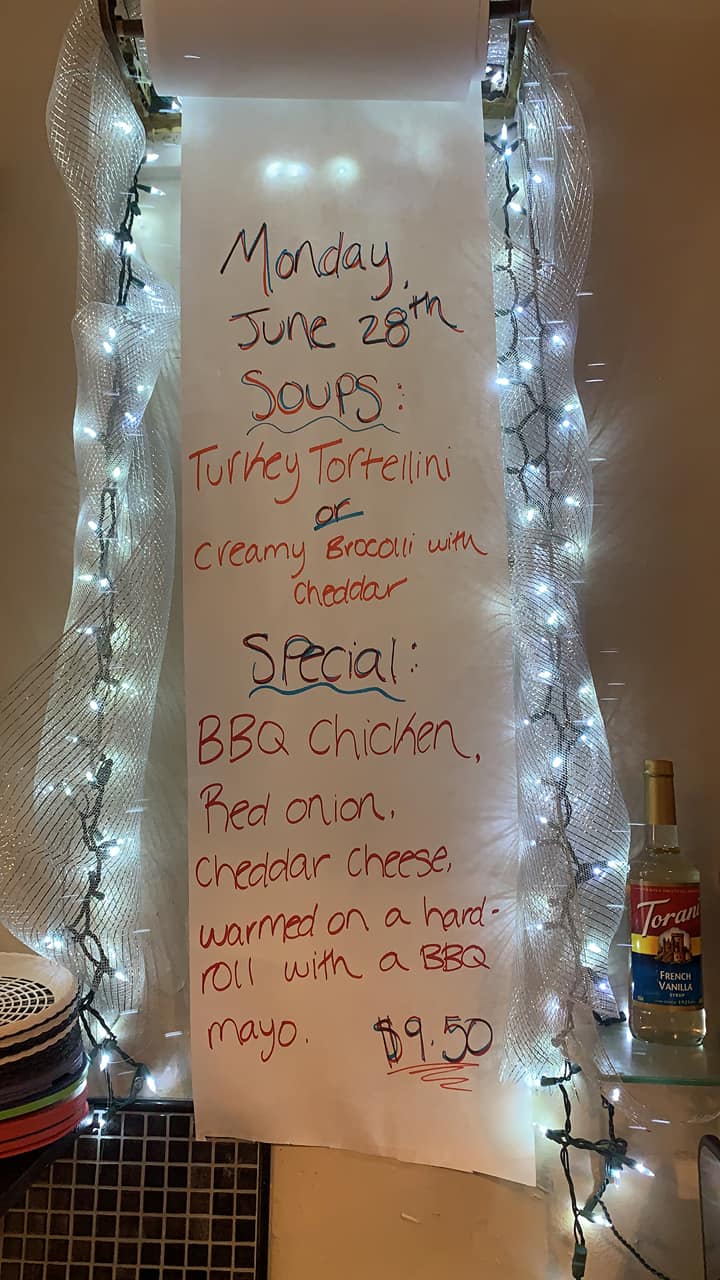 Monday,
June 28th
Soups:
Turkey Tortellini
or
Creamy Brocolli with
Cheddar
Special:
BBQ Chicken,
Red onion,
Cheddar Cheese,
warmed on a hard-
roll with a BBQ
mayo. $9.50
Torani
FRENCH
VANILLA
SYRUP